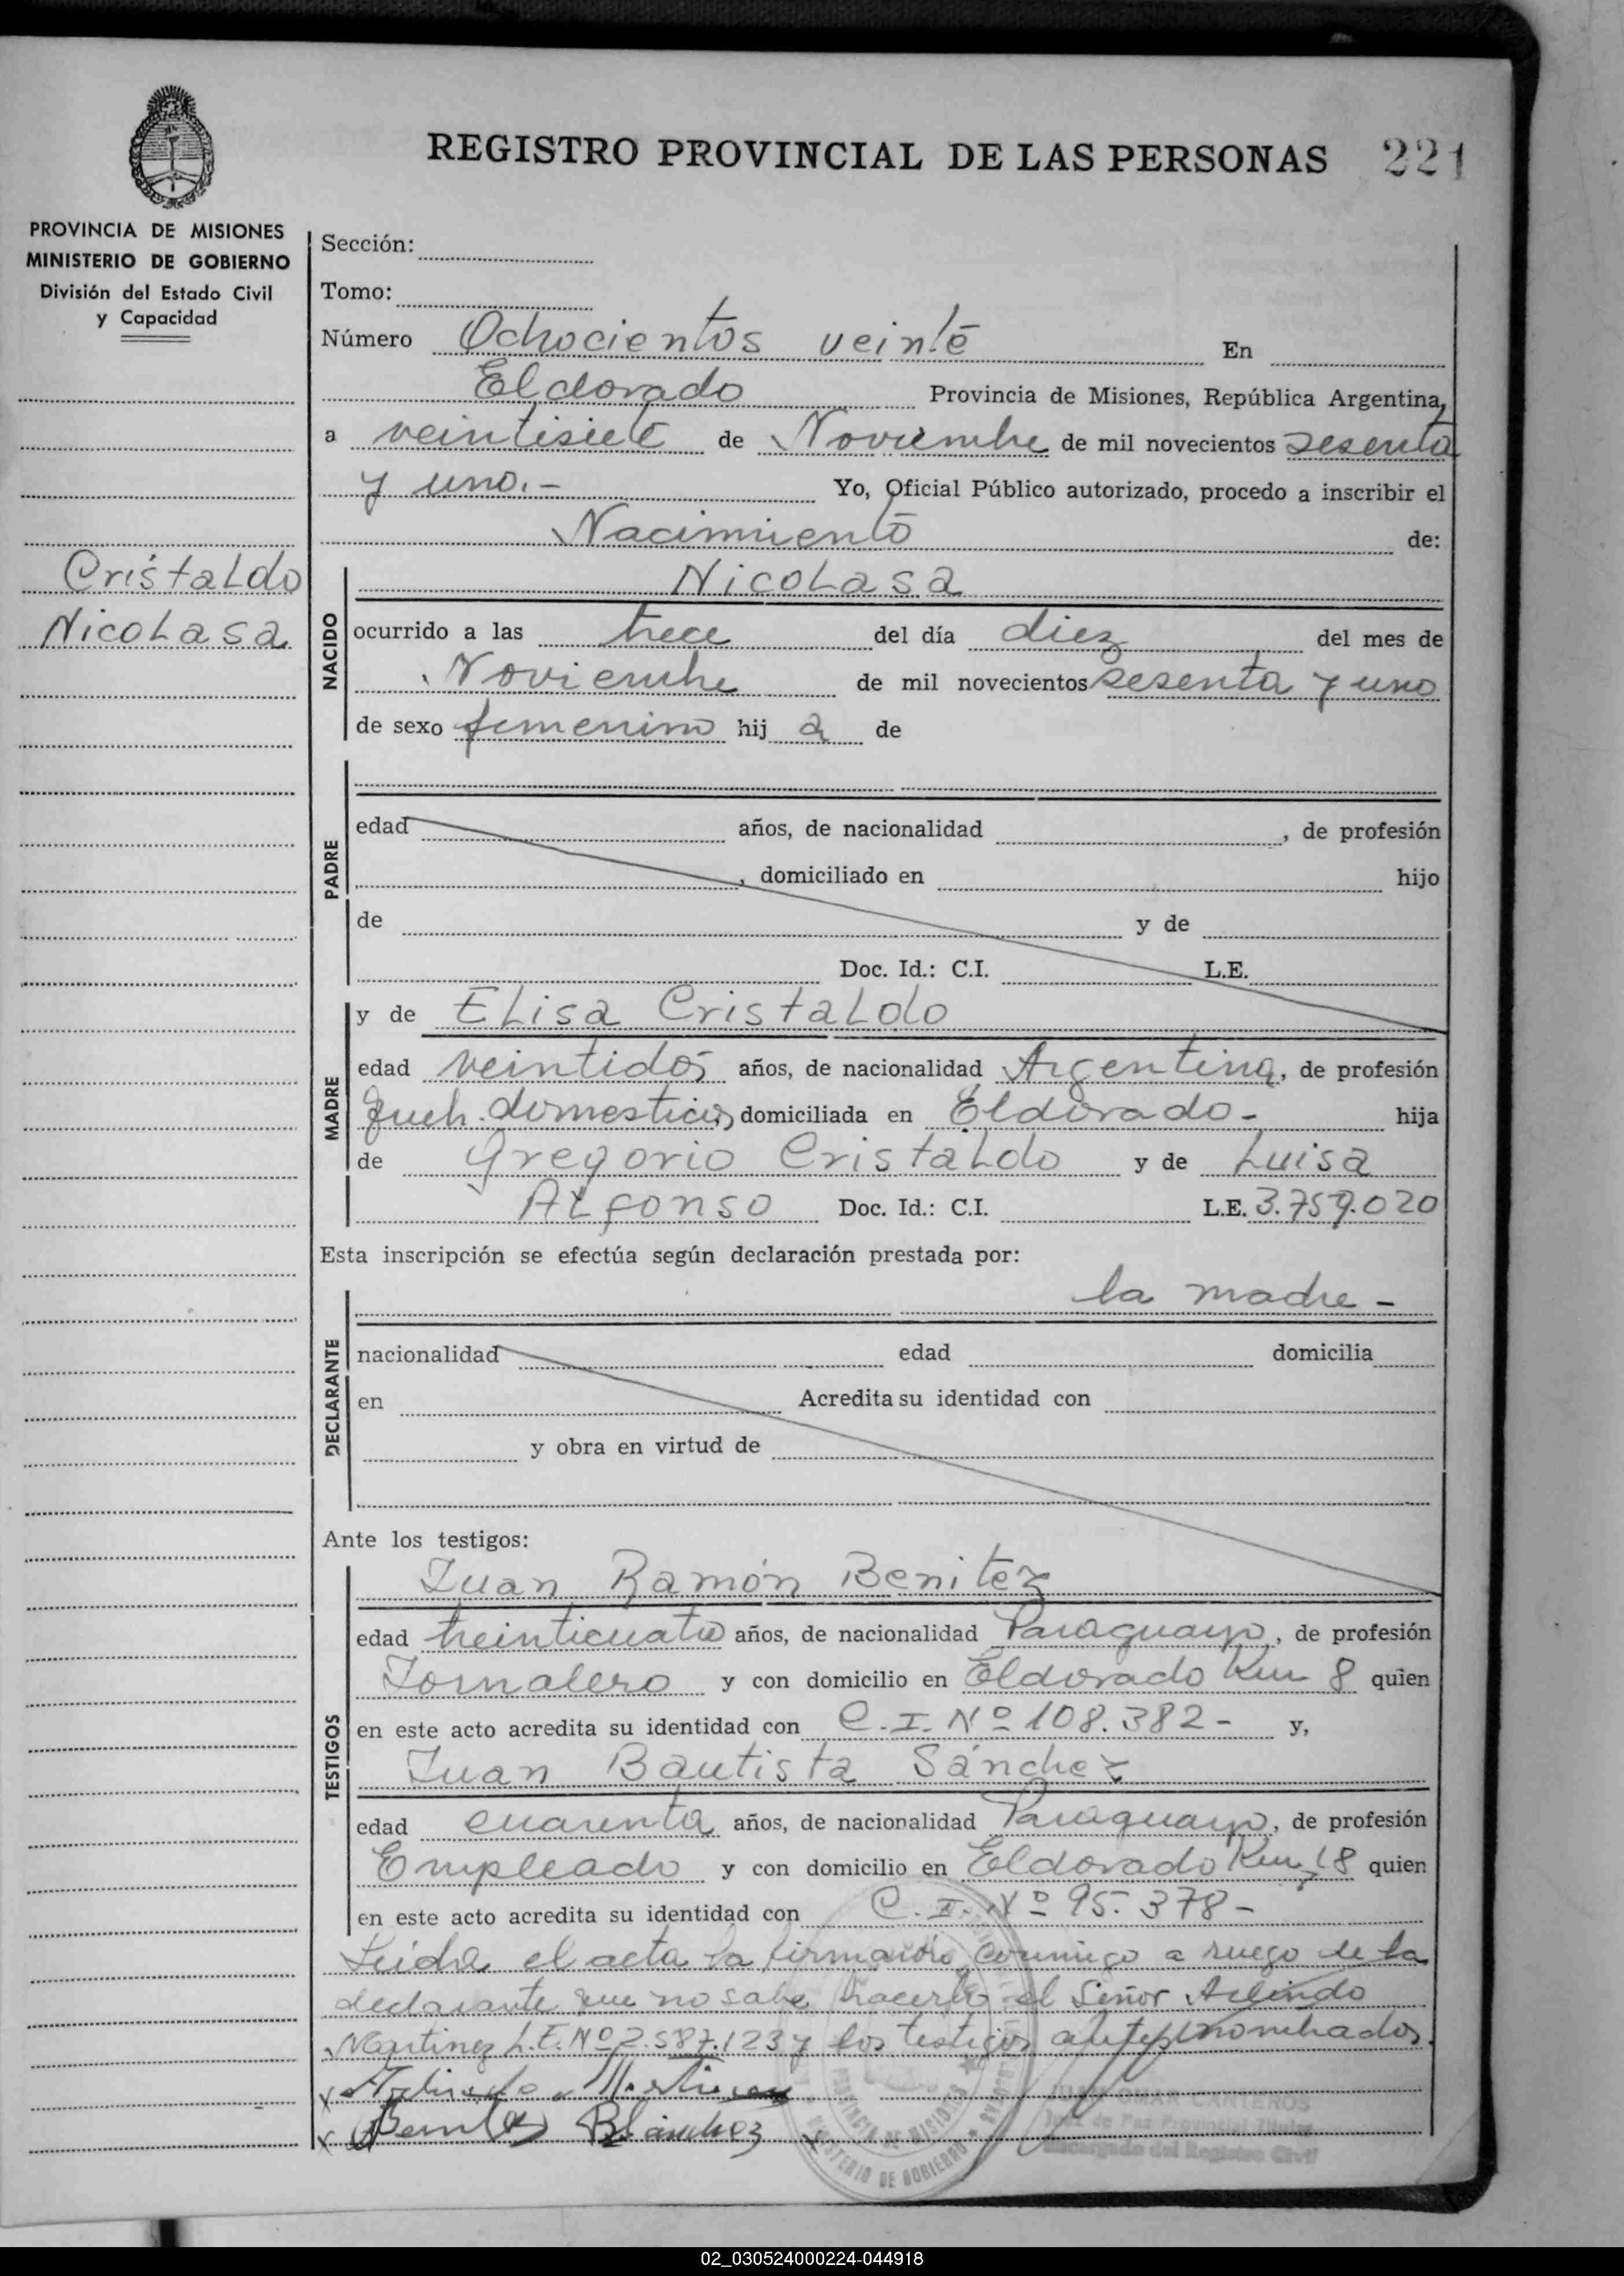 REGISTRO PROVINCIAL DE LAS PERSONAS 221
PROVINCIA DE MISIONES
MINISTERIO DE GOBIERNO
División del Estado Civil
y Capacidad
Cristaldo
Nicolasa
Sección:
Tomo:
Número Ochocientos veinte En
Eldorado Provincia de Misiones, República Argentina,
a veintisiete de Noviembre de mil novecientos sesenta
y uno.- Yo, Oficial Público autorizado, procedo a inscribir el
Nacimiento de:
NACIDO
Nicolasa
ocurrido a las trece del día diez del mes de
Noviembre de mil novecientos sesenta y uno
de sexo femenino hij a de
PADRE
edad años, de nacionalidad , de profesión
, domiciliado en hijo
de y de
Doc. Id.: C.I. L.E.
MADRE
y de Elisa Cristaldo
edad veintidos años, de nacionalidad Argentina, de profesión
domesticos domiciliada en Eldorado- hija
de Gregorio Cristaldo y de Luisa
Alfonso Doc. Id.: C.I. L.E. 3.759.020
Esta inscripción se efectúa según declaración prestada por:
DECLARANTE
la madre -
nacionalidad edad domicilia
en Acredita su identidad con
y obra en virtud de
Ante los testigos:
TESTIGOS
Juan Ramón Benitez
edad treinticuatro años, de nacionalidad Paraguayo, de profesión
Jornalero y con domicilio en Eldorado Km 8 quien
en este acto acredita su identidad con C.I. Nº 108.382- y,
Juan Bautista Sánchez
edad cuarenta años, de nacionalidad Paraguayo, de profesión
Empleado y con domicilio en Eldorado Km 18 quien
en este acto acredita su identidad con C.I. Nº 95.378-
Leida el acta la firmaron conmigo a ruego de la
declarante que no sabe hacerlo el Señor Arlindo
Martinez L.E. Nº 2.587.123 y los testigos antesnombrados.
OMAR CANTEROS
Juez de Paz Provincial Titular
Encargado del Registro Civil
PROVINCIA DE MISIONES
MINISTERIO DE GOBIERNO
02_030524000224-044918